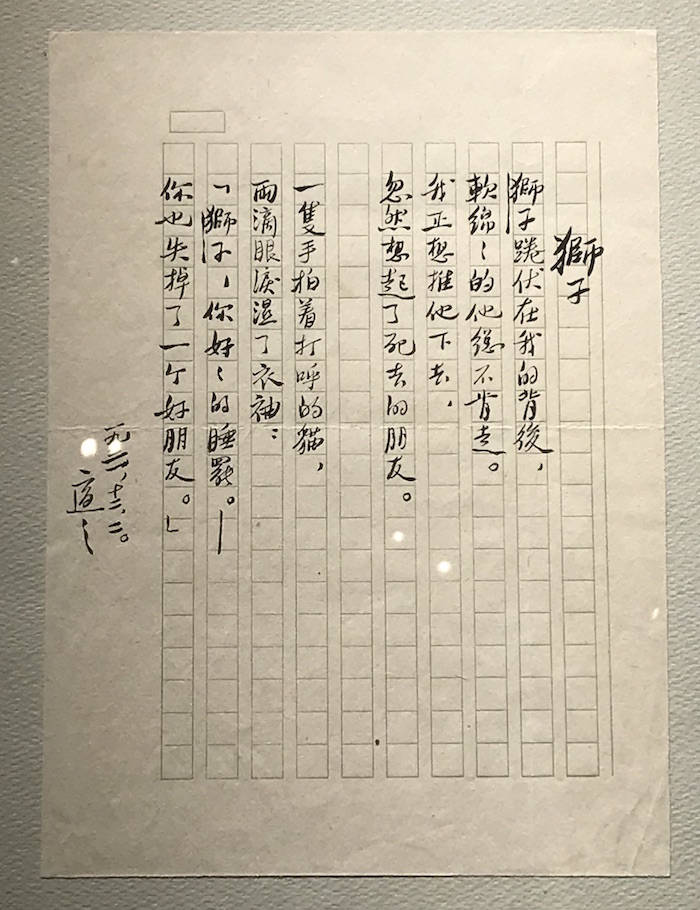 獅子
獅子踡伏在我的背後，
軟綿〻的他總不肯走。
我正想推他下去，
忽然想起了死去的朋友。
一隻手拍着打呼的貓，
兩滴眼淚濕了衣袖：
「獅子，你好〻的睡罷。—
你也失掉了一个好朋友。」
一九三一，十二，二。
適之